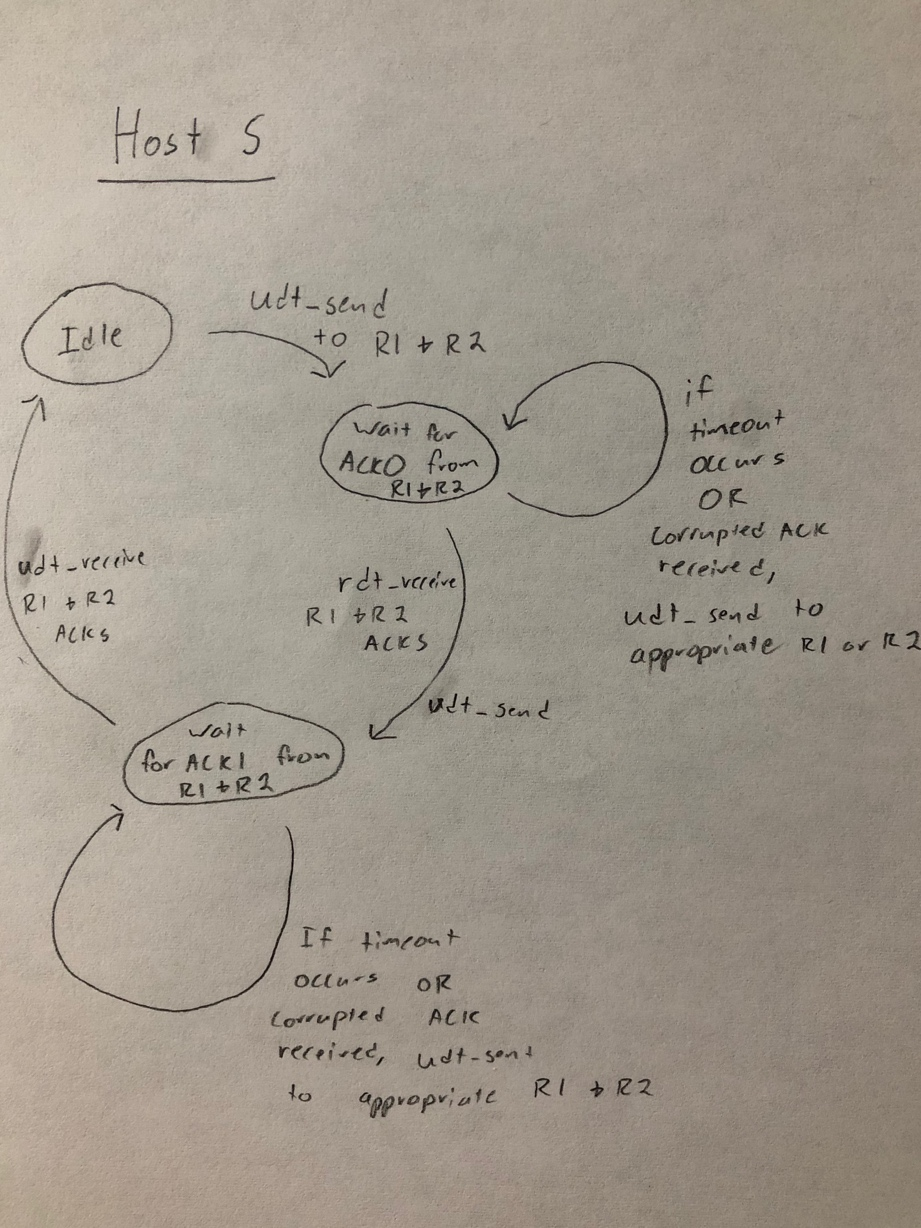 Host S
Idle
udt_send
to R1 + R2
wait for
ACK0 from
R1+R2
if
timeout
occurs
OR
corrupted ACK
received,
udt_send to
appropriate R1 or R2
udt_receive
R1 + R2
ACKs
rdt_receive
R1 + R2
ACKS
udt_send
wait
for ACK1 from
R1 + R2
If timeout
occurs OR
corrupted ACK
received, udt-sent
to appropriate R1 + R2